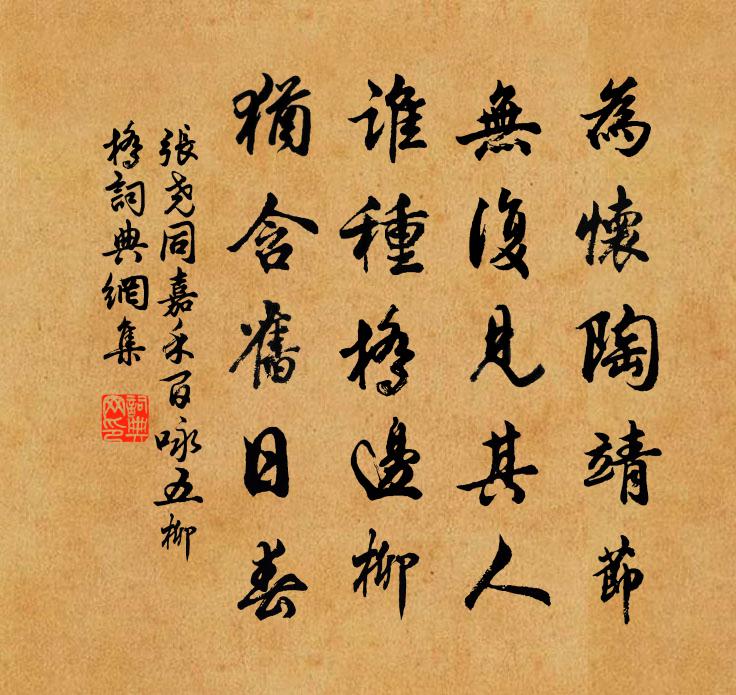 為懷陶靖節
無復見其人
誰種橋邊柳
猶含舊日春
張堯同嘉禾百咏五柳
橋詞典網集
詞典网印